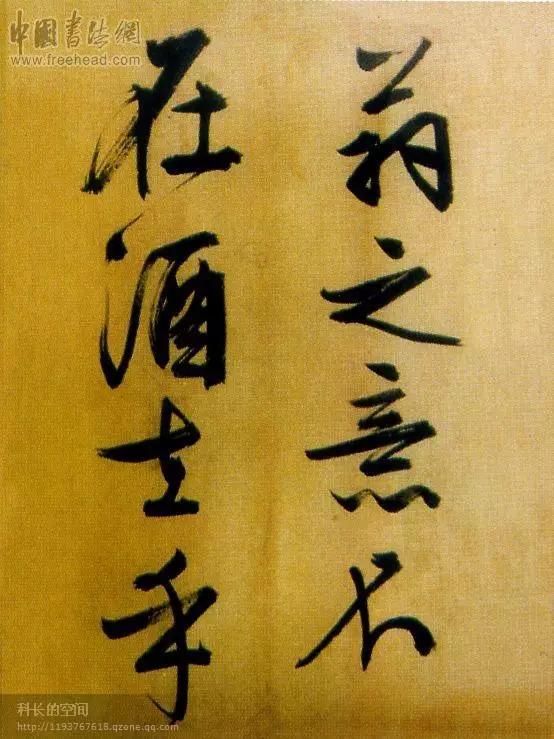 中國書法網
www.freehead.com
翁之意不
在酒在乎
科长的空间
http://1193767618.qzone.qq.com